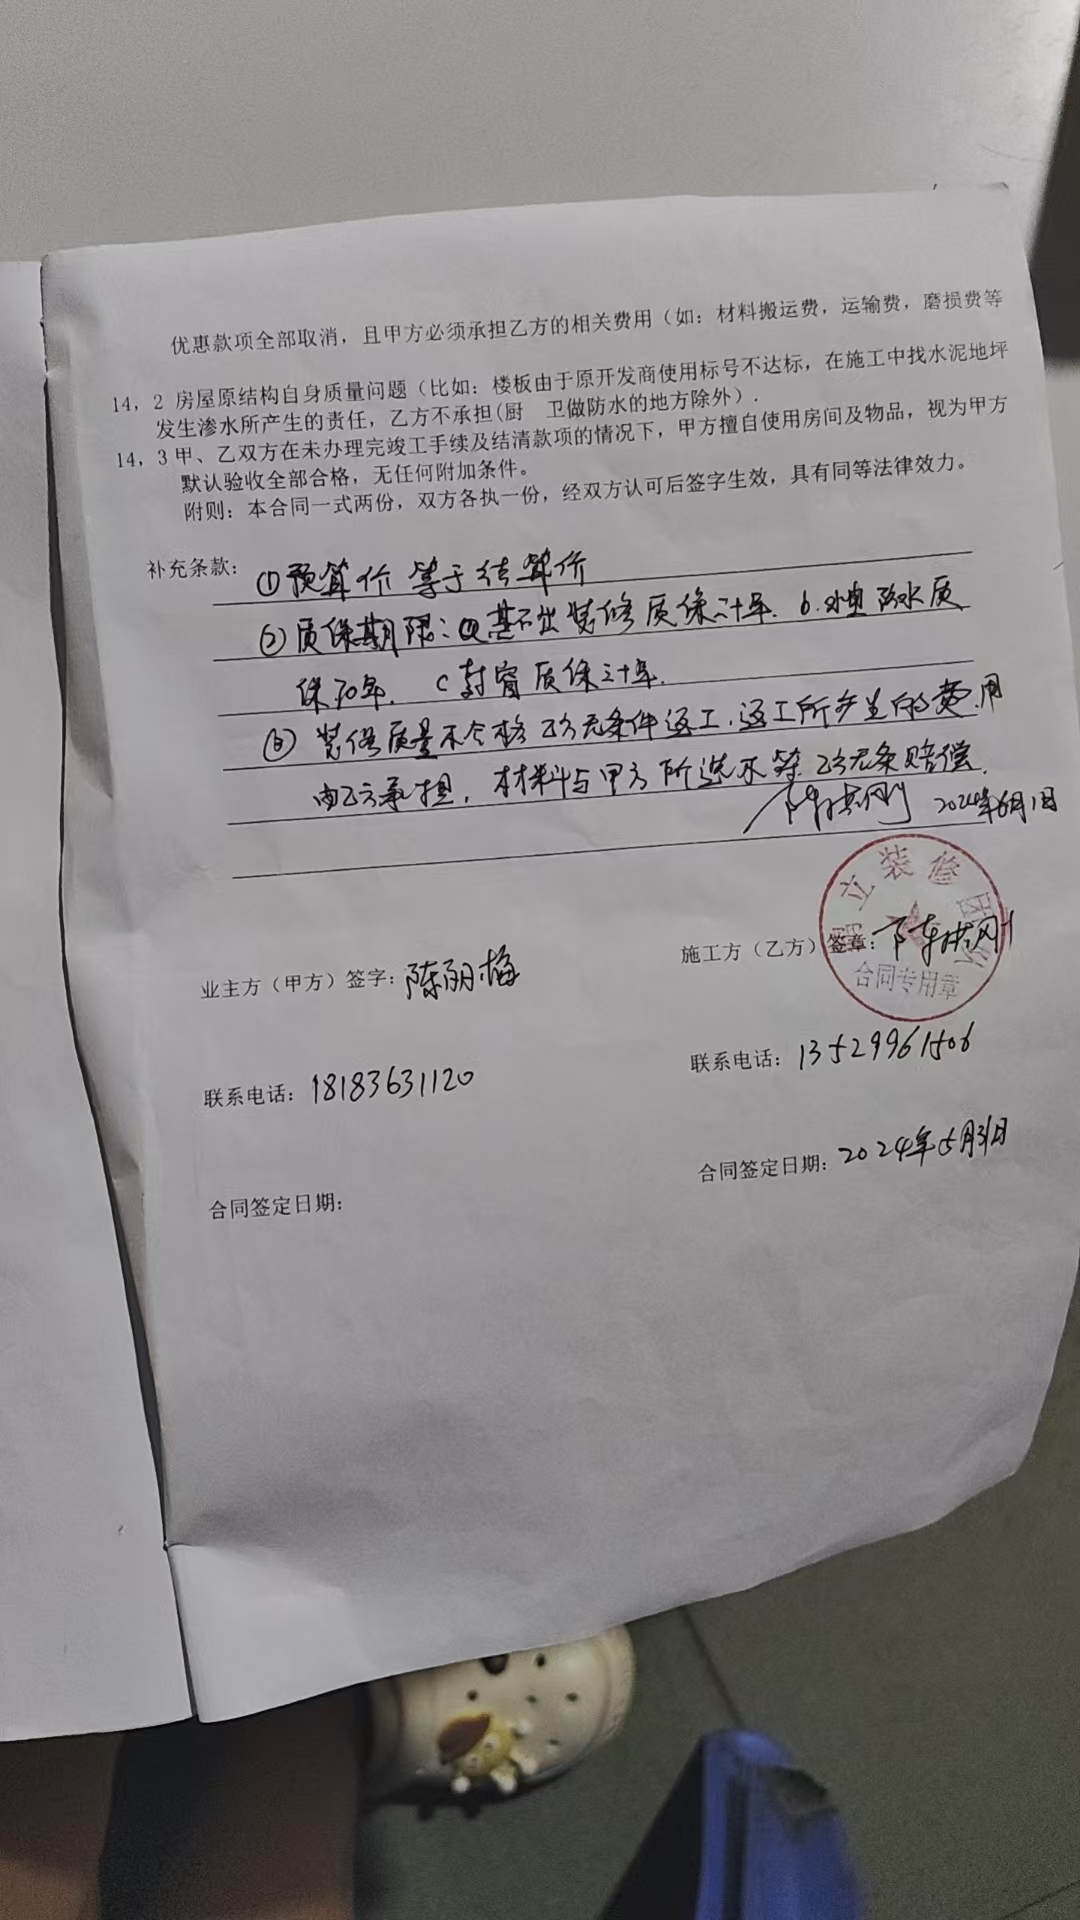 优惠款项全部取消，且甲方必须承担乙方的相关费用（如：材料搬运费，运输费，磨损费等
14，2 房屋原结构自身质量问题（比如：楼板由于原开发商使用标号不达标，在施工中找水泥地坪
发生渗水所产生的责任，乙方不承担(厨 卫做防水的地方除外）.
14，3 甲、乙双方在未办理完竣工手续及结清款项的情况下，甲方擅自使用房间及物品，视为甲方
默认验收全部合格，无任何附加条件。
附则：本合同一式两份，双方各执一份，经双方认可后签字生效，具有同等法律效力。
补充条款：①预算价等于结算价
②质保期限：a 装修质保三十年. b. 防水质
保30年. C 封窗质保三十年.
③ 装修质量不合格乙方无条件返工.返工所产生的费用
由乙方承担，材料与甲方所选不符乙方无条赔偿.
2024年6月1日
立装修
业主方（甲方）签字：陈丽梅
施工方（乙方）签章：
合同专用章
联系电话：18183631120
联系电话：13529961506
合同签定日期：
合同签定日期：2024年5月31日